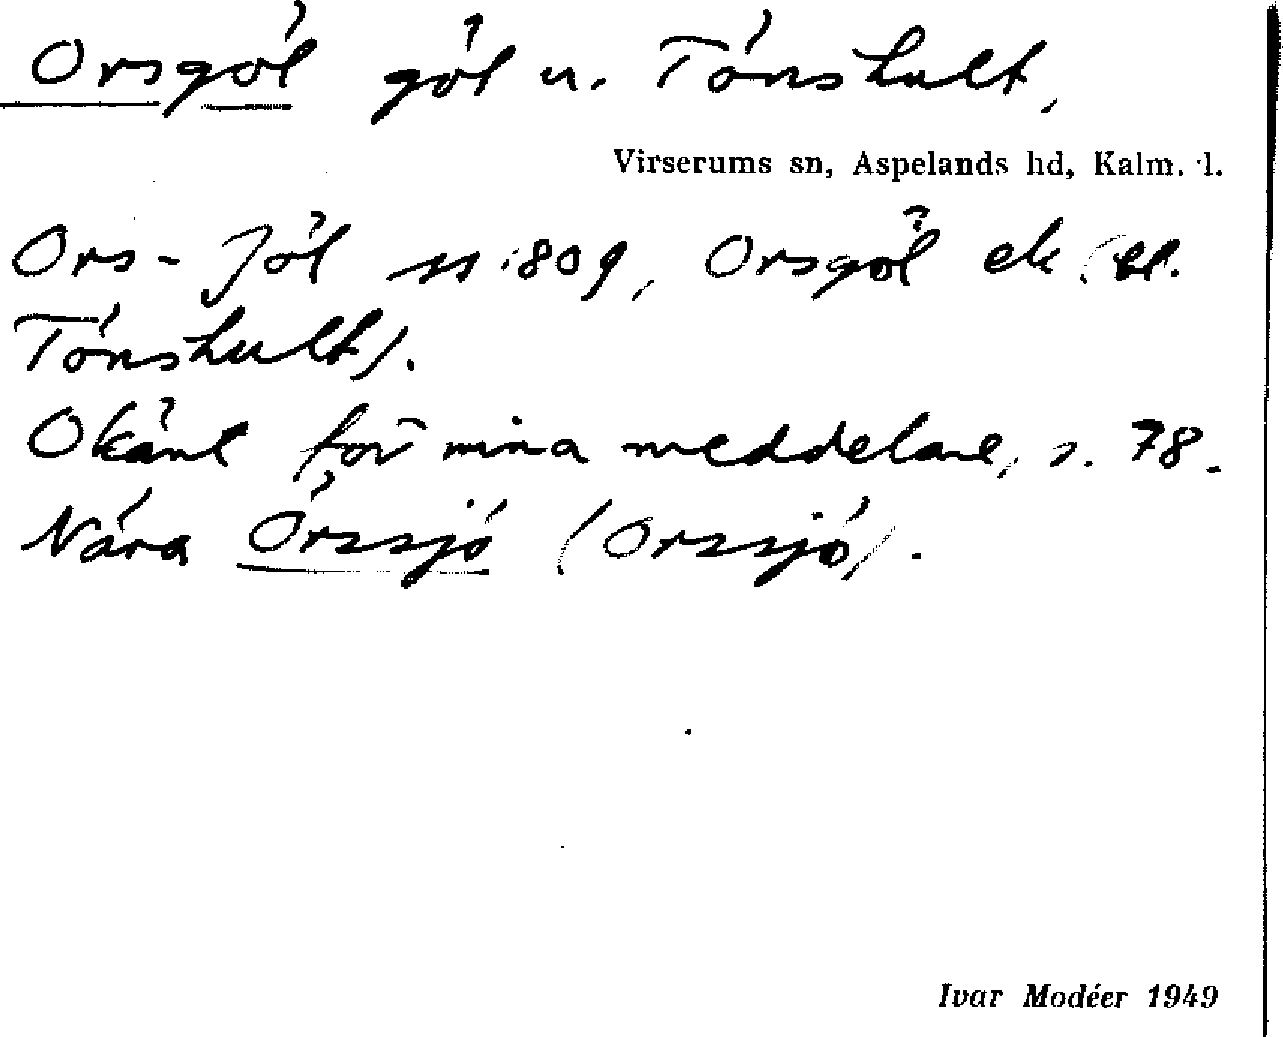 Orsgöl göl u. Tönshult,
Virserums sn, Aspelands hd, Kalm. l.
Ors-Jöl ss 1809, Orsgöl ek (bl.
Tönshult).
Okänt för mina meddelare, s. 78.
Nära Örssjö (Orssjö).
Ivar Modéer 1949